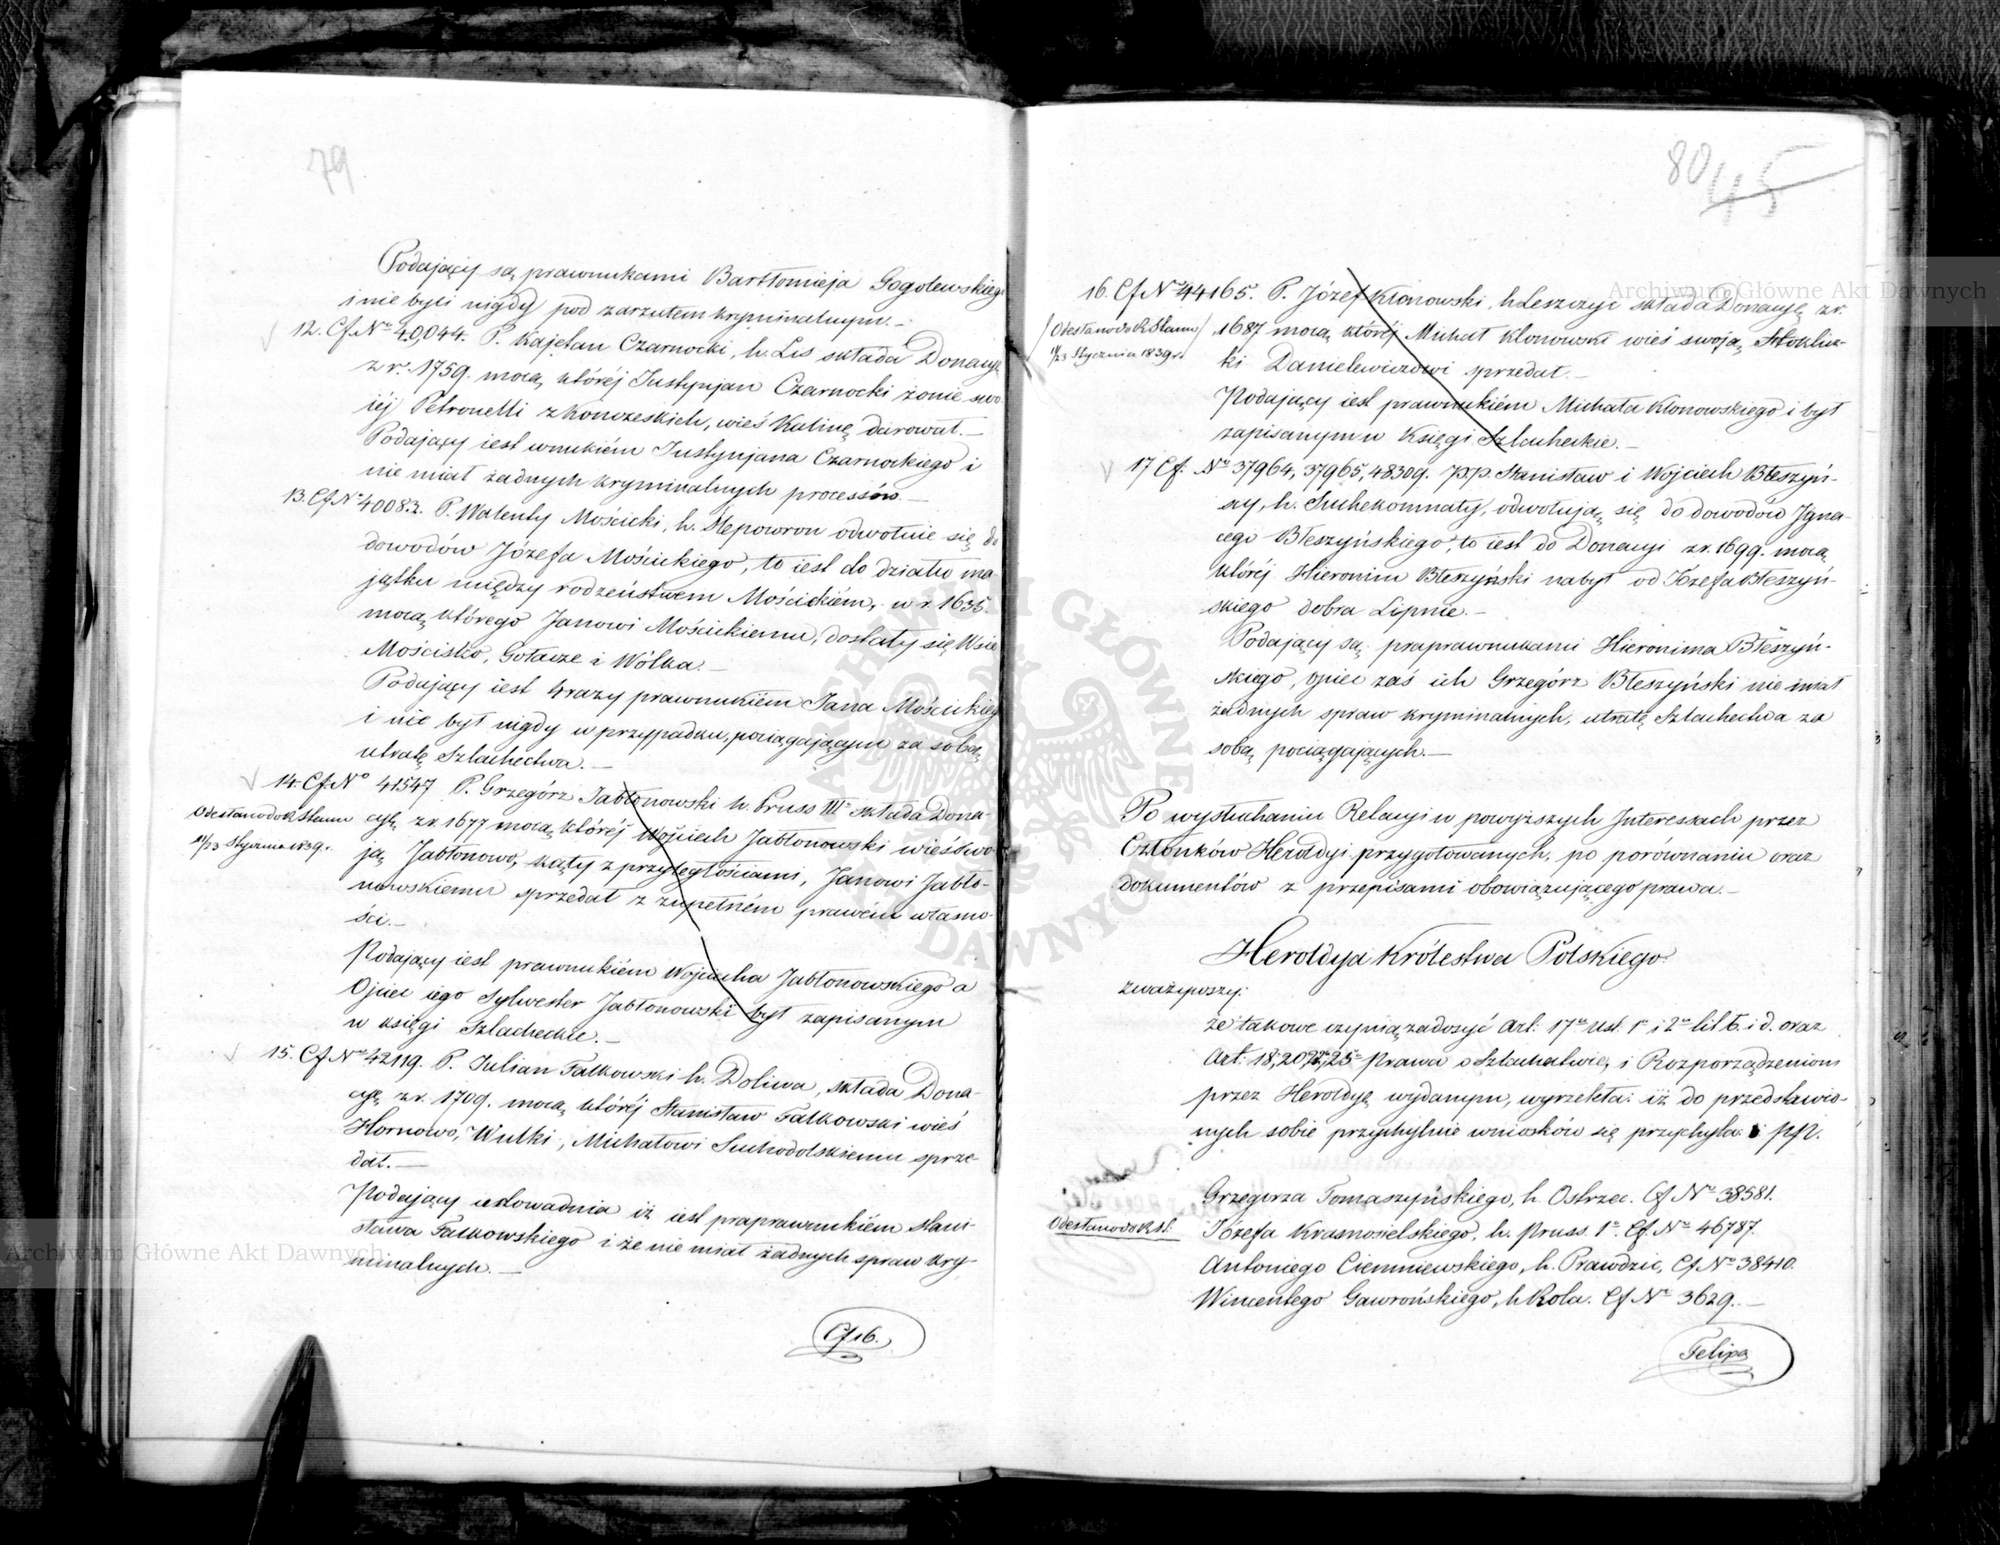 79
Podający są prawnukami Bartłomieja Gogolewskiego
i nie byli nigdy pod zarzutem kryminalnym.—
12. Cf. No 40,044. P. Kajetan Czarnocki, h. Lis składa Donacyą
z r. 1759. mocą któréj Justynjan Czarnocki żonie swo
iéj Petronelli z Konczeskich, wieś Kalinę darował.—
Podający iest wnukiém Justynjana Czarnockiego i
nie miał żadnych kryminalnych processów.—
13. Cf No 40083. P. Walenty Mościcki, h. Slepowron odwołuie się do
dowodów Józefa Mościckiego, to iest do działu ma-
jątku między rodzeństwem Mościckiém, w r. 1635.
mocą którego Janowi Mościckiemu, dostały się Wsie
Mościsko, Gołacze i Wólka.—
Podający iest 4 razy prawnukiém Jana Mościckiego
i nie był nigdy w przypadku, pociągającym za sobą
utratę Szlachectwa.—
14. Cf. No 41547 P. Grzegórz Jabłonowski h. Pruss III° składa Dona-
Odesłano do R. Stanu
11/23 Stycznia 1839 r.
cyę z r. 1677 mocą któréj Wojciech Jabłonowski wieś swo
ją Jabłonowo, kąty z przyległościami, Janowi Jabło-
nowskiemu sprzedał z zupełném prawém własno-
ści.—
Podający iest prawnukiém Wojciecha Jabłonowskiego a
Ojciec iego Sylwester Jabłonowski był zapisanym
w księgi Szlacheckie.—
15. Cf No 42119. P. Julian Falkowski h. Doliwa, składa Dona-
cyę z r. 1709. mocą któréj Stanisław Falkowski wieś
Hornowo, Wulki, Michałowi Suchodolskiemu sprze-
dał.—
Podający udowadnia iż iest praprawnukiém Stani-
sława Falkowskiego i że nie miał żadnych spraw kry-
minalnych.—
Cf 16.
80 45
16. Cf No 44165. P. Józef Klonowski, h. Leszczyc składa Donacyę z r.
Odesłano do R. Stanu
11/23 Stycznia 1839 r.
1687 mocą któréj Michał Klonowski wieś swoją Stoklisz-
ki Danielewiczowi sprzedał.—
Podający iest prawnukiém Michała Klonowskiego i był
zapisanym w Księgi Szlacheckie.—
17 Cf: No 37964, 37965, 48309. P.P. Stanisław i Wojciech Błeszyń-
scy, h. Suchekomnaty, odwołują się do dowodów Igna-
cego Błeszyńskiego, to iest do Donacyi z r. 1699. mocą
któréj Hieronim Błeszyński nabył od Józefa Błeszyń-
skiego dobra Lipnie.—
Podający są praprawnukami Hieronima Błeszyń-
skiego, ojciec zaś ich Grzegórz Błeszyński nie miał
żadnych spraw kryminalnych, utratę Szlachectwa za
sobą pociągających.—
Po wysłuchaniu Relacyi w powyższych Interessach przez
Członków Heroldyi przygotowanych, po porównaniu oraz
dokumentów z przepisami obowiązującego prawa.—
Heroldya Królestwa Polskiego
zważywszy:
że takowe czynią zadosyć Art: 17° ust. 1° i 2° lit. b. i d. oraz
Art. 18, 20, 25° Prawa o Szlachectwie, i Rozporządzeniom
przez Heroldyę wydanym, wyrzekła: iż do przedstawio-
nych sobie przychylnie wniosków się przychyla i PP.
Grzegorza Tomaszyńskiego, h. Ostrzec. Cf No 38581.
Odesłano do R. St.
Józefa Krasnosielskiego, h. Pruss. 1°. Cf. No 46787.
Antoniego Ciemniewskiego, h. Prawdzic, Cf No 38410.
Wincentego Gawrońskiego, h. Rola. Cf No 3629.—
Felixa
Archiwum Główne Akt Dawnych
Archiwum Główne Akt Dawnych
ARCHIWUM GŁÓWNE AKT DAWNYCH